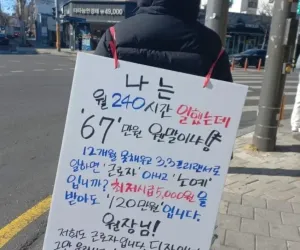 나는
월 240시간 일했는데
'67'만원 웬말이냐!
12개월 올해우 3.3프리랜서로
일하면 '근로자' 아니고 '노예'
입니까? 최저시급 5,000원을
받아도 '120만원' 입니다.
원장님!
저희도 근로자입니다.